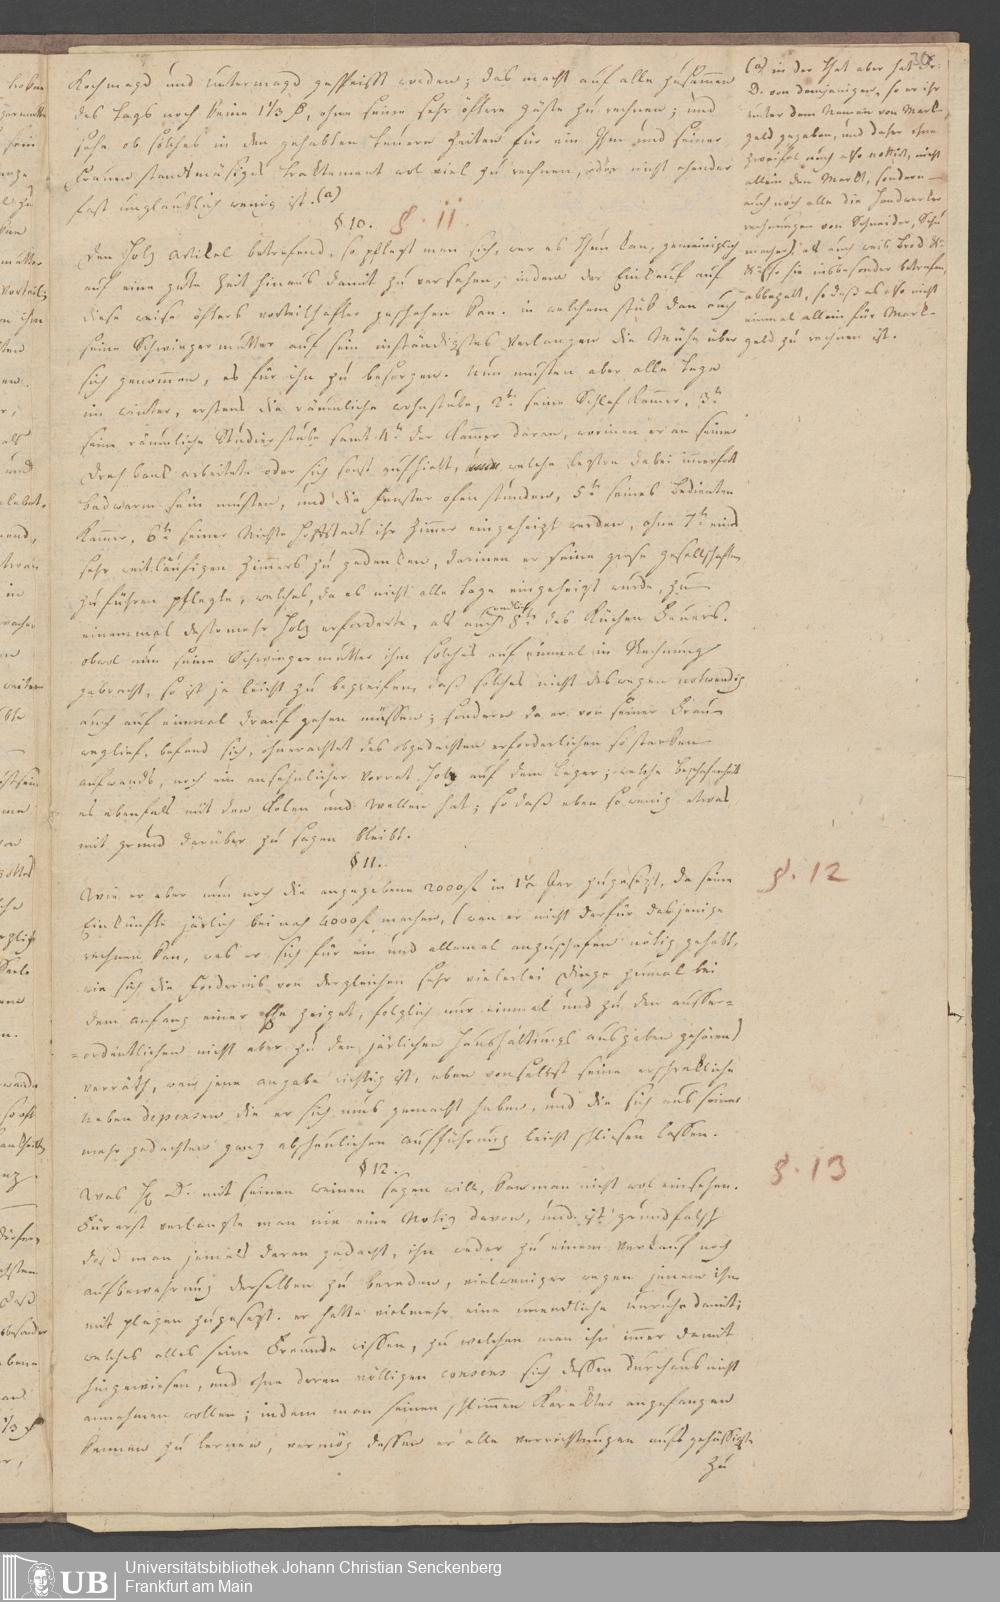 Kochmagd und Untermagd gespeisst worden; das macht auf alle zusammen
des Tags noch keine 1 1/3 f, ohne seine sehr öftern Gäste zu rechnen; und
sehe ob solches in den gehabten teuern Zeiten für ein Ihm und seiner
Frauen standtmäsiges Tractement wol viel zu rechnen, oder nicht ehender
fast unglaublich wenig ist. (a)
§ 10. §. 11.
Den Holz Artikel betrefend, so pflegt man sich, wer es thun kan, gemeiniglich
auf eine gute Zeit hinaus damit zu versehen, indem der Einkauf auf
diese weise öfters vorteilhafter geschehen kan. in welchem stük dan auch
seine Schwiegermutter auf sein inständigstes Verlangen die Mühe über
sich genommen, es für ihn zu besorgen. Nun musten aber alle Tage
im winter, erstens die räumliche wohnstube, 2tens seine Schlafkammer, 3tens
seine räumliche Studierstube samt 4tens der Kammer daran, worinen er an seiner
Drehbank arbeitete oder sich sonst aufhielt, welche leztre dabei immerfort
badwarm sein musten, und die Fenster ofen stunden, 5tens seines Bedienten
Kammer, 6tens seiner Nichte Hoffstadt ihr Zimmer eingeheizt werden, ohne 7tens eines
sehr weitläufigen Zimmers zu gedenken, darinen er seine grose Gesellschaften
zu führen pflegte, welches, da es nicht alle Tage eingeheizt wurde, zu
einemmal destomehr Holz erforderte, als auch endlich 8tens des Küchen Feuers.
obwol nun seine Schwiegermutter ihm solches auf einmal in Rechnung
gebracht, so ist ja leicht zu begreifen, daß solches nicht deswegen notwendig
auch auf einmal drauf gehen müssen; sondern da er von seiner Frau
weglief, befand sich, ohnerachtet des obgedachten erforderlichen so starken
aufwands, noch ein ansehnlicher Vorrat Holz auf dem Lager; welche beschafenheit
es ebenfals mit den Kolen und Wellen hat; so daß eben so wenig etwas
mit grund darüber zu sagen bleibt.
§ 11. §. 12
Wie er aber nun noch die angegebene 2000 f in 1 1/2 Jar zugesezt, da seine
Einkünfte järlich beinah 4000 f machen, (wen er nicht darfür dasjenige
rechnen kan, was er sich für ein und allemal anzuschafen nötig gehabt,
wie sich die Fordernis von dergleichen sehr vielerlei Dinge zumal bei
dem anfang einer Ehe zeiget, folglich nur einmal und zu den ausser=
=ordentlichen nicht aber zu den järlichen Haushaltungs ausgaben gehören)
verräth, wen jene angabe richtig ist, eben vonselbst seine erschrekliche
Neben depensen die er sich mus gemacht haben, und die sich aus seiner
mehr gedachten ganz abscheulichen aufführung leicht schliesen lassen.
§ 12. §. 13
Was H. D. mit seinen weinen sagen will, kan man nicht wol einsehen.
Fürerst verlangte man nie eine Notiz davon, und ist grundfalsch
daß man jemals daran gedacht, ihn weder zu einem Verkauf noch
aufbewahrung derselben zu bereden, vielweniger wegen jenem ihn
mit plagen zugesezt. er hatte vielmehr eine unendliche unruhe damit;
welches alles seine Freunde wissen, zu welchen man ihn immer damit
hingewiesen, und ohne deren völligen consens sich dessen durchaus nicht
annehmen wollen; indem man seinen schlimmen Karakter angefangen
kennen zu lernen, vermög dessen er alle Verrichtungen aufs gehässigste
zu
(a) in der That aber hat Hr.
D. von demjenigen, so er ihr
unter dem Namen von Mark-
geld gegeben, und daher ohne
zweifel auch also notirt, nicht
allein den Markt, sondern
auch noch alle die Handwerker
rechnungen von Schneider, Schu
macher, als auch weis Brod &c
&c so sie insbesonder betrafen,
abbezalt, so daß es also nicht
einmal allein für Mark-
geld zu rechnen ist.
Universitätsbibliothek Johann Christian Senckenberg
Frankfurt am Main
UB